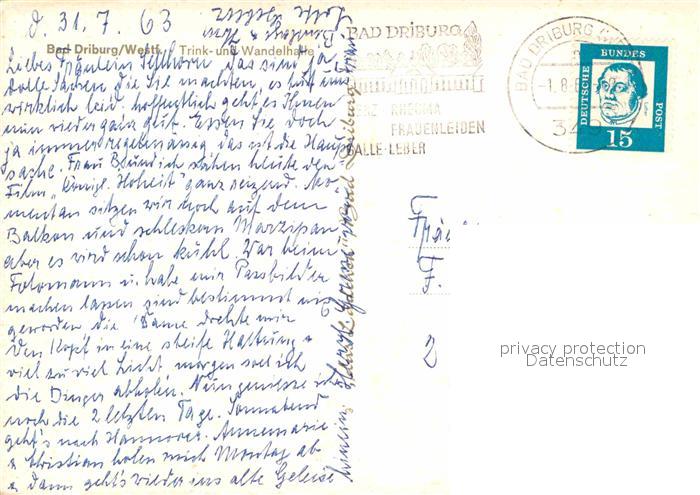 d. 31.7.63
Bad Driburg/Westf. Trink- und Wandelhalle
Liebes Fräulein Fellhorn das sind ja
tolle Sachen die Sie machten, es tut uns
wirklich leid. hoffentlich geht es Ihnen
nun wieder ganz gut. Essen Sie doch
ja immer das ist die Haupt
sache. Frau B u. ich sahen heute den
Film "Königl. Hoheit" ganz reizend. Mo-
mentan sitzen wir noch auf dem
Balkon und schleckern Marzipan
aber es wird schon kühl. War beim
Fotomann u. habe mir Passbilder
machen lassen sind bestimmt nix
geworden die Dame drehte mir
den Kopf in eine steife Haltung u
viel zu viel Licht. morgen soll ich
die Dinger abholen. Nun geniesse ich
noch die 2 letzten Tage. Sonnabend
geht's nach Hannover. Annemarie
u Christian holen mich Montag ab
u dann geht's wieder ins alte Geleise
Herzl. Grüsse
BAD DRIBURG
RHEUMA
FRAUENLEIDEN
GALLE-LEBER
BAD DRIBURG
-1.8.6
349
DEUTSCHE BUNDES POST
Luther
15
Fräu
F.
2
privacy protection
Datenschutz